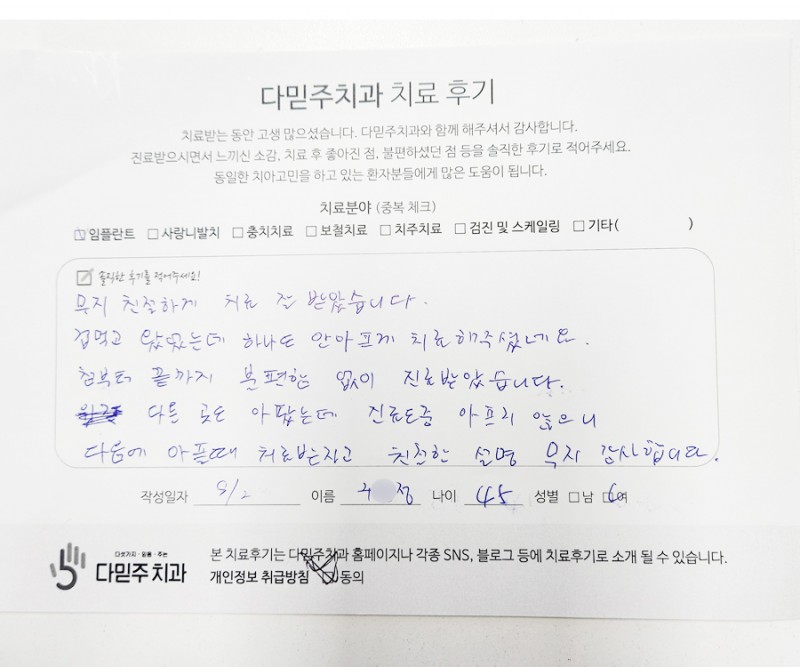 다믿주치과 치료 후기
치료받는 동안 고생 많으셨습니다. 다믿주치과와 함께 해주셔서 감사합니다.
진료받으시면서 느끼신 소감, 치료 후 좋아진 점, 불편하셨던 점 등을 솔직한 후기로 적어주세요.
동일한 치아고민을 하고 있는 환자분들에게 많은 도움이 됩니다.
치료분야 (중복 체크)
임플란트 사랑니발치 충치치료 보철치료 치주치료 검진 및 스케일링 기타( )
솔직한 후기를 적어주세요!
무지 친절하게 치료 잘 받았습니다.
겁먹고 왔었는데 하나도 안아프게 치료해주셨네요.
첨부터 끝까지 불편함 없이 진료받았습니다.
다른 곳도 아팠는데 진료도중 아프리 않으니
다음에 아플때 치료받는지고 친절한 설명 무지 감사합니다.
작성일자 9/2 이름 정 나이 45 성별 남 여
다섯가지·믿음·주는
다믿주치과
본 치료후기는 다믿주치과 홈페이지나 각종 SNS, 블로그 등에 치료후기로 소개 될 수 있습니다.
개인정보 취급방침 동의